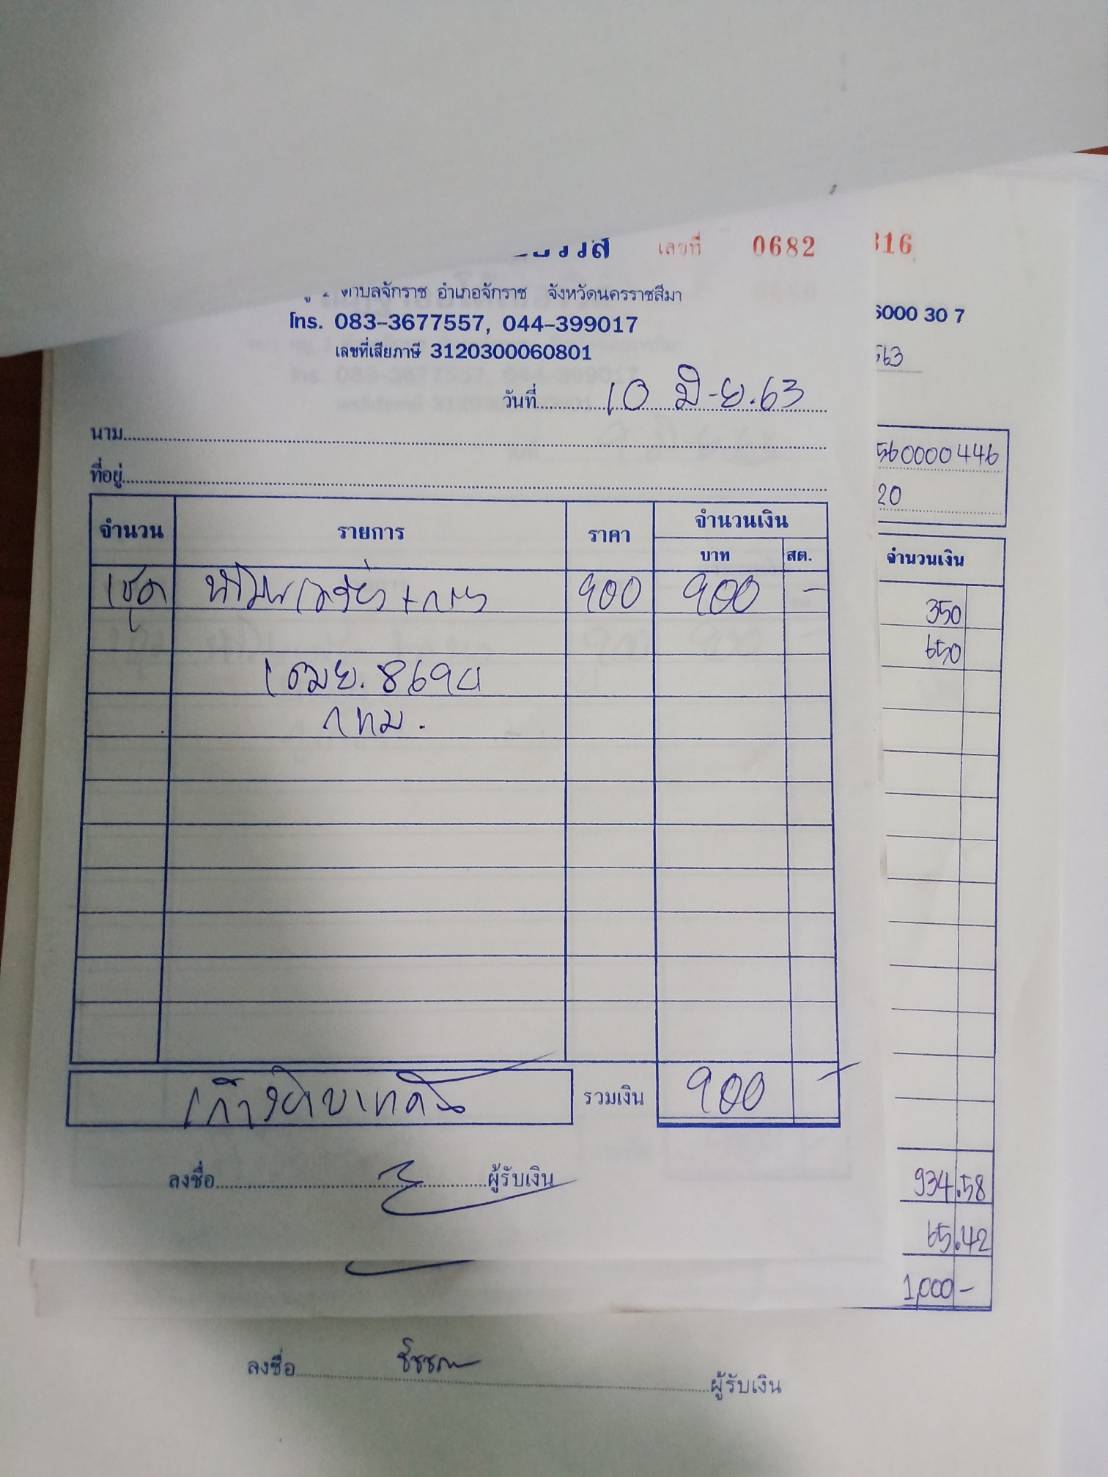 เลขที่ 0682
316
ตำบลจักราช อำเภอจักราช จังหวัดนครราชสีมา
โทร. 083-3677557, 044-399017
6000 30 7
เลขที่เสียภาษี 3120300060801
563
วันที่ 10 มิ-ย.63
นาม
560000446
ที่อยู่
20
จำนวน รายการ ราคา จำนวนเงิน
บาท สต.
จำนวนเงิน
1ชุด 900 900 -
350
650
กทม.
เก้าร้อยบาทถ้วน รวมเงิน 900 -
ลงชื่อ ผู้รับเงิน
934.58
65.42
1,000-
ลงชื่อ ผู้รับเงิน